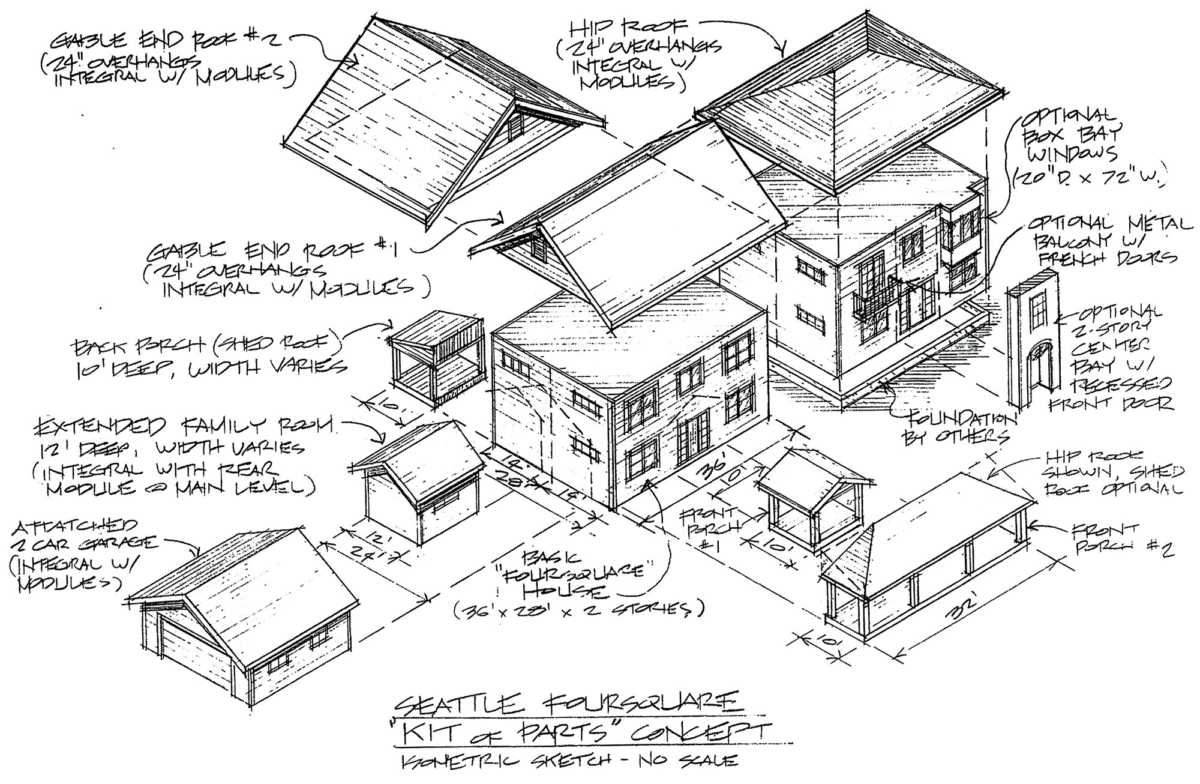 GABLE END ROOF #2
(24" OVERHANGS
INTEGRAL W/ MODULES)
HIP ROOF
(24" OVERHANGS
INTEGRAL W/
MODULES)
OPTIONAL
BOX BAY
WINDOWS
(20" D. X 72" W.)
OPTIONAL METAL
BALCONY W/
FRENCH DOORS
GABLE END ROOF #1
(24" OVERHANGS
INTEGRAL W/ MODULES)
BACK PORCH (SHED ROOF)
10' DEEP, WIDTH VARIES
OPTIONAL
2-STORY
CENTER
BAY W/
RECESSED
FRONT DOOR
FOUNDATION
BY OTHERS
EXTENDED FAMILY ROOM
12' DEEP, WIDTH VARIES
(INTEGRAL WITH REAR
MODULE @ MAIN LEVEL)
10'
12'
28'
14'
36'
10'
HIP ROOF
SHOWN, SHED
ROOF OPTIONAL
ATTATCHED
2 CAR GARAGE
(INTEGRAL W/
MODULES)
12'
24'
FRONT
PORCH
#1
10'
FRONT
PORCH #2
BASIC
"FOURSQUARE"
HOUSE
(36' X 28' X 2 STORIES)
32'
10'
SEATTLE FOURSQUARE
"KIT OF PARTS" CONCEPT
ISOMETRIC SKETCH - NO SCALE